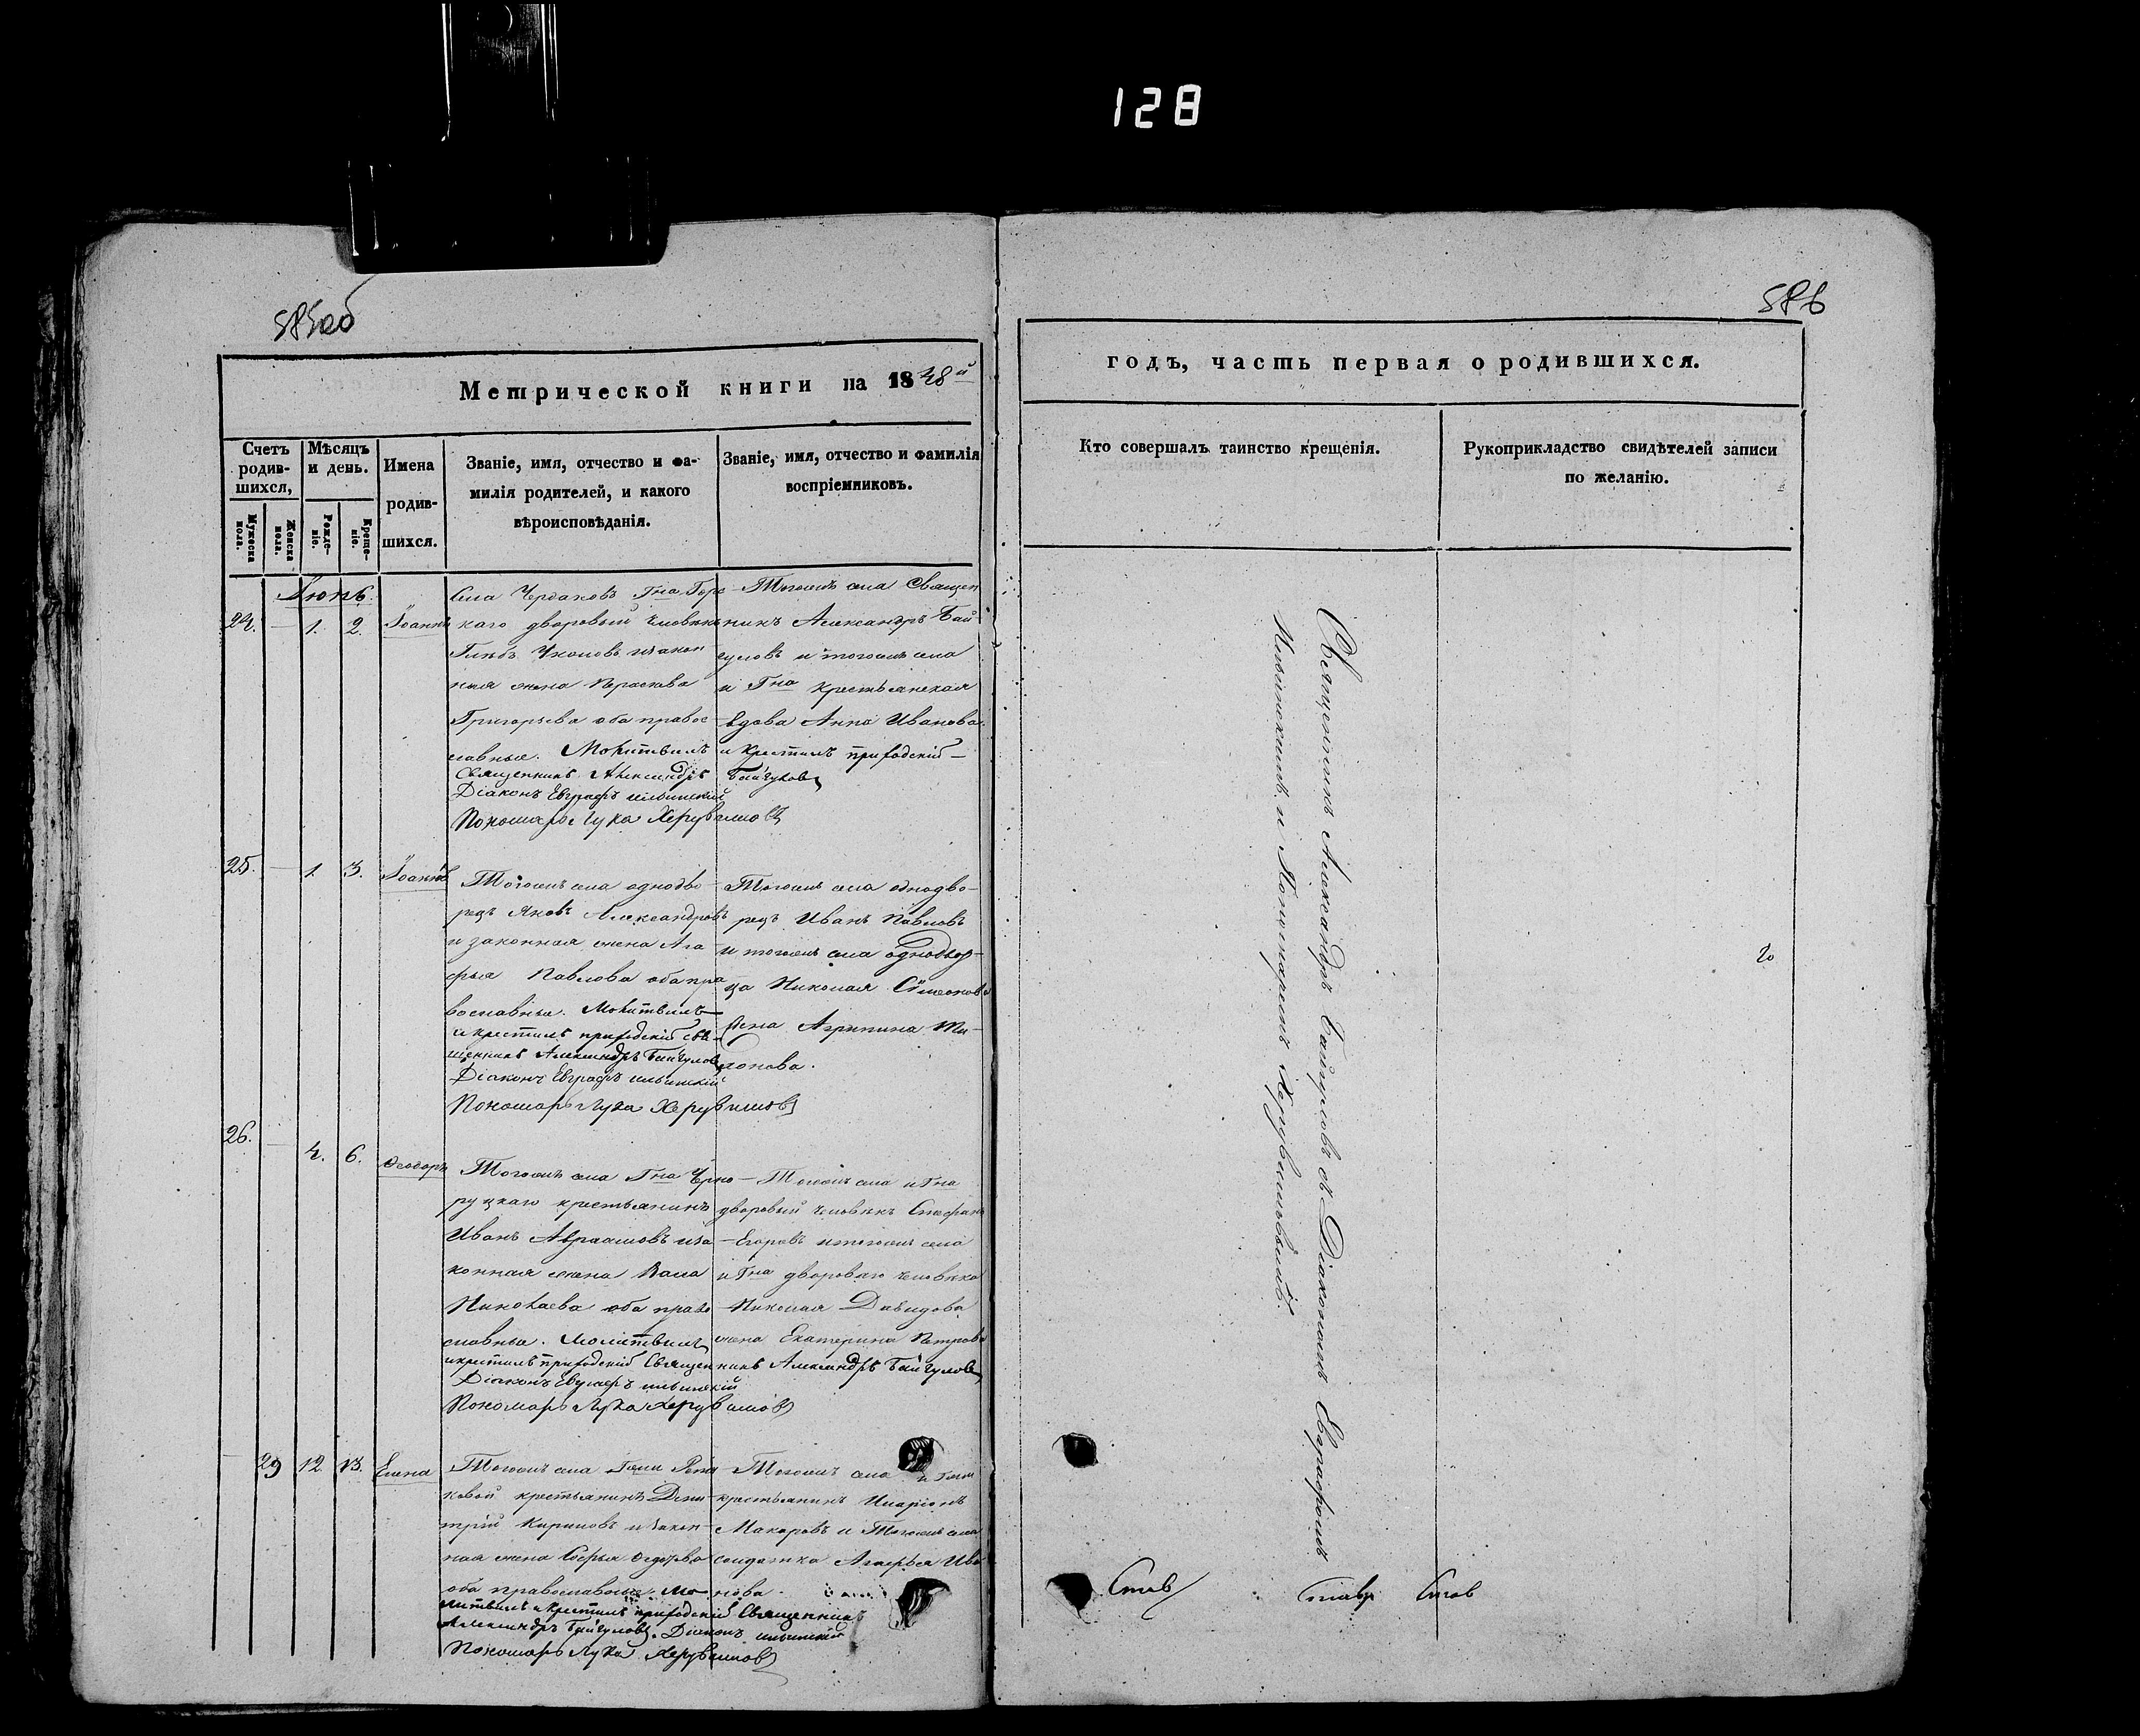 128
585об
586
Метрической книги на 1848й
годъ, часть первая о родившихся.
Счетъ родив-шихся,
Мужеска пола.
Женска пола.
Мѣсяцъ и день.
Рожде-ніе.
Креще-ніе.
Имена родив-шихся.
Званіе, имя, отчество и фа-
милія родителей, и какого
вѣроисповѣданія.
Званіе, имя, отчество и фамилія
воспріемниковъ.
Кто совершалъ таинство крещенія.
Рукоприкладство свидѣтелей записи
по желанію.
Іюнь.
24. — 1. 2. Іоаннъ
Села Чердаковъ Гна Горс
каго дворовый человѣкъ
Глѣбъ и закон
ная жена Параскева
Григорьева оба правос
лавные. Молитвилъ и крестилъ приходскій
Священникъ Александръ Байгуловъ
Діаконъ Евграфъ Ильинскій
Пономарь Лука Херувимовъ
Тогожъ села Священ
никъ Александръ Бай
гуловъ и тогожъ села
и Гна крестьянская
вдова Анна Иванова.
25. — 1. 3. Іоаннъ
Тогожъ села однодво
рецъ Яковъ Александровъ
и законная жена Ага
фья Павлова оба пра
вославные. Молитвилъ
и крестилъ приходскій свя-
щенникъ Александръ Байгуловъ
Діаконъ Евграфъ Ильинскій
Пономарь Лука Херувимовъ
Тогожъ села однодво-
рецъ Иванъ Павловъ
и тогожъ села однодвор-
ца Николая Сѵмеонова
жена Агрипина
26. — 4. 6. Ѳеодоръ
Тогожъ села Гна Черно
руцкаго крестьянинъ
Иванъ Авраамовъ и за
конная жена Васса
Николаева оба право
славные. Молитвилъ
и крестилъ приходскій Священникъ Александръ Байгуловъ
Діаконъ Евграфъ Ильинскій
Пономарь Лука Херувимовъ
Тогожъ села и Гна
дворовый человѣкъ Стефанъ
Егоровъ и тогожъ села
и Гна двороваго человѣка
Николая Давидова
жена Екатерина Петрова
— 29 12. 13. Елена
Тогожъ села Гжи
ковой крестьянинъ Дими
трій Кириловъ и закон
ная жена Софья Ѳедорова
оба православные. Мо
литвилъ и крестилъ приходскій Священникъ
Александръ Байгуловъ. Діаконъ Ильинскій
Пономарь Лука Херувимовъ
Тогожъ села и Гжи
крестьянинъ Иларіонъ
Макаровъ и Тогожъ села
солдатка Агафья Ива
нова.
Священникъ Александръ Байгуловъ съ Діакономъ Евграфомъ
Ильинскимъ и Пономаремъ Херувимовымъ.